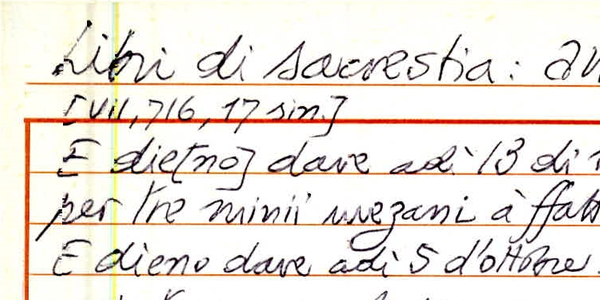 Libri di sacrestia: an
[VII, 716, 17 sin.]
E die[no] dare adì 13 di
per tre minii mezani à ffatt
E dieno dare adì 5 d'ottobre